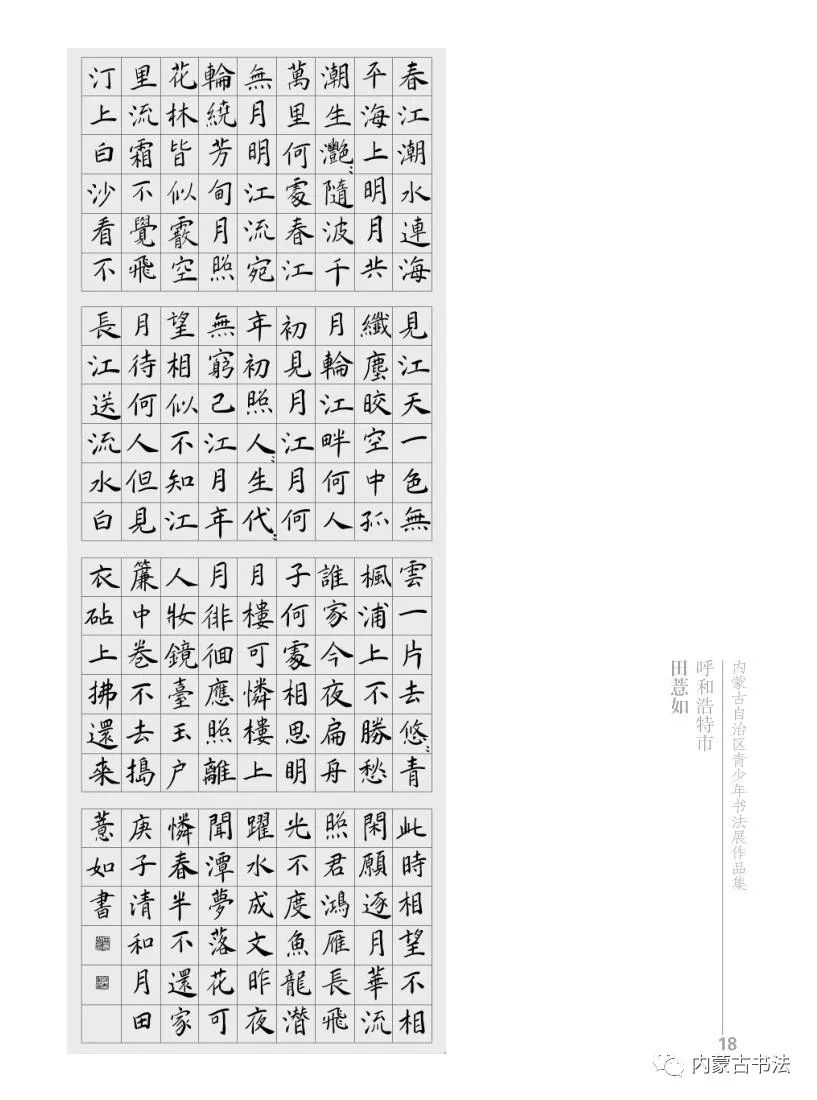 春江潮水連海
平海上明月共
潮生灧〻隨波千
萬里何處春江
無月明江流宛
輪繞芳甸月照
花林皆似霰空
里流霜不覺飛
汀上白沙看不
見江天一色無
纖塵皎空中孤
月輪江畔何人
初見月江月何
年初照人〻生代〻
無窮己江月年
望相似不知江
月待何人但見
長江送流水白
雲一片去悠〻青
楓浦上不勝愁
誰家今夜扁舟
子何處相思明
月樓可憐樓上
月徘徊應照離
人妝鏡臺玉户
簾中卷不去搗
衣砧上拂還來
此時相望不相
閑願逐月華流
照君鴻雁長飛
光不度魚龍潛
躍水成文昨夜
聞潭夢落花可
憐春半不還家
庚子清和月田
薏如書
内蒙古自治区青少年书法展作品集
呼和浩特市
田薏如
18
内蒙古书法